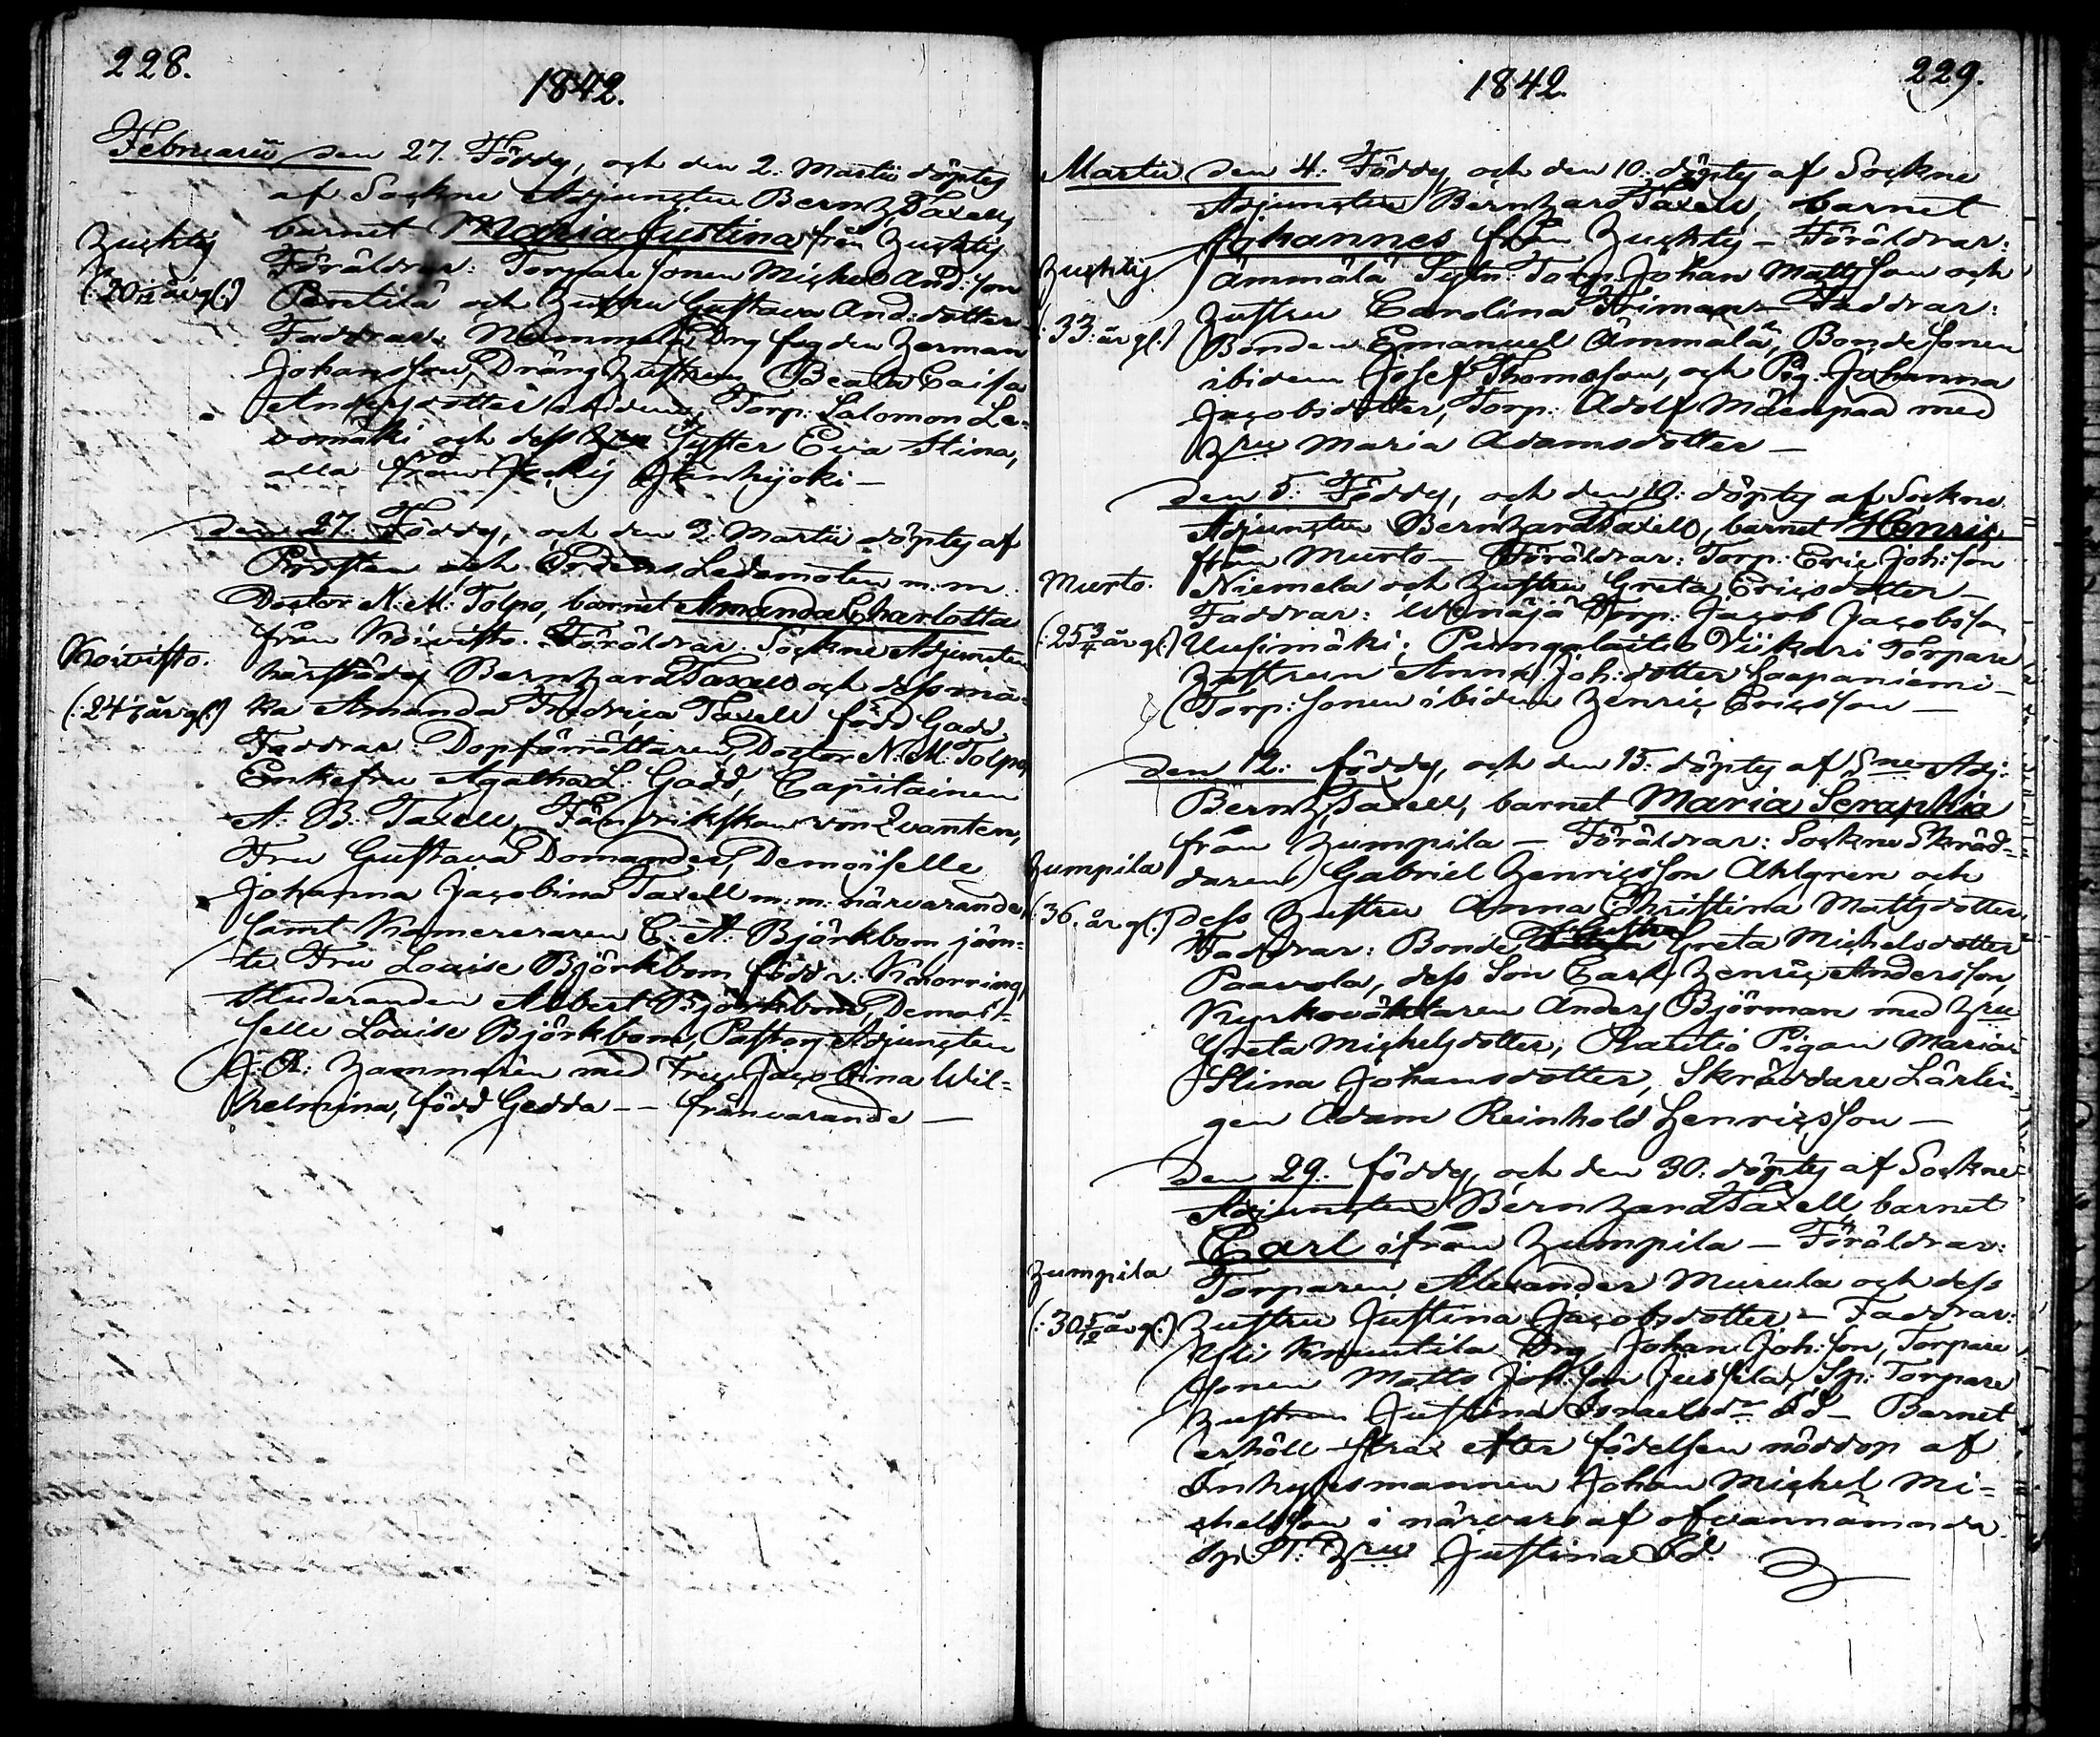 228.
1842.
Februarii den 27. Föddes, och den 2. Martii döptes
af Sockne Adjuncten Bernh. Taxell,
barnet Maria Justina från Huhtis
Huhtis
Föräldrar: Torpare sonen Michel And:son
(:20 år gl:)
Penttilä och hustru Gustava And:dotter
Faddrar: Nummela Drg fogden Herman
Johansson, Dräng hustrun Beata Caisa
Andersdotter ibidem, Torp: Salomon Le-
vomäki och dess Syster Eva Stina,
alla från
den 27. Föddes, och den 3. Martii döptes af
Prosten och Ordens Ledamoten m:m
Doctor N: M: Tolpo, barnet Amanda Charlotta
från Koivisto. Föräldrar. Sockne Adjuncten
Koivisto.
härstädes Bernhard Taxell och dess ma-
(:24 1/2 år gl:)
ka Amanda Fredrica Taxell född Gadd
Faddrar: Dopförrättaren, Doctor N: M: Tolpo,
Enkefru Agatha L: Gadd, Capitainen
A: B: Taxell, Fändrikskan von Qvanten,
Fru Gustava Domander, Demoiselle
Johanna Jacobina Taxell m:m: närvarande,
samt Kamereraren C: A: Björkbom jäm-
te Fru Louise Björkbom född v: Knorring,
Studeranden Albert Björkbom, Demoi-
selle Louise Björkbom, Pastors Adjuncten
J: R: Hammarén med Fru Jacobina Wil-
helmina, född Gedda -- frånvarande —
1842.
229.
Martii den 4: Föddes och den 10: döptes af Sockne
Adjuncten Bernhard Taxell, barnet
Johannes från Huhtis – Föräldrar:
Huhtis
Ämmälä Sytn. Torp. Johan Mattsson och
(:33: år gl:)
hustru Carolina Friman – Faddrar:
Bonden Emanuel Ämmälä, Bondesonen
ibidem Josef Thomasson, och Pig: Johanna
Jacobsdotter, Torp: Adolf Mäenpää med
Hru Maria Adamsdotter —
den 5: Föddes, och den 10: döptes af Sockne
Adjuncten Bernhard Taxell, barnet Henric
från Murto – Föräldrar: Torp: Eric Joh:son
Murto.
Niemelä och hustru Greta Ericsdotter –
Faddrar: Torp: Jacob Jacobsson
(:25 3/4 år gl:)
Uusimäki; Pungalaitio Viikari Torpare
hustrun Anna Joh:dotter Haapaniemi –
Torp: sonen ibidem Henric Ericsson —
den 12: föddes, och den 15: döptes af Sne Adj:
Bernh. Taxell, barnet Maria Seraphia
från Humpila — Föräldrar: Sockne Skräd-
Humpila
daren Gabriel Henricsson Ahlgren och
(:36. år gl:)
dess hustru Anna Christina Mattsdotter
Faddrar: Bonde Hustru Greta Michelsdotter
Paavola, dess Son Carl Henric Andersson,
Kyrkoväktaren Anders Björman med Hru
Greta Michelsdotter, Rautio Pigan Maria
Stina Johansdotter, Skräddare Lärlin-
gen Adam Reinhold Henricsson —
den 29. föddes, och den 30: döptes af Sockne
Adjuncten Bernhard Taxell, barnet
Carl ifrån Humpila — Föräldrar:
Humpila
Torparen Alexander Murula och dess
(:30 5/12 år gl:)
Hustru Justina Jacobsdotter – Faddrar:
Yli Knuutila Drg Johan Joh:son, Torpare
sonen Matts Joh:son Jussila, Sp: Torpare
hustrun Justina Israelsdr Öd – Barnet
erhöll strax efter födelsen nöddop af
Inhysesmannen Johan Michel Mi-
chelsson i närvaro af ofvannämnda
Sp: T: Hru Justina Öd.